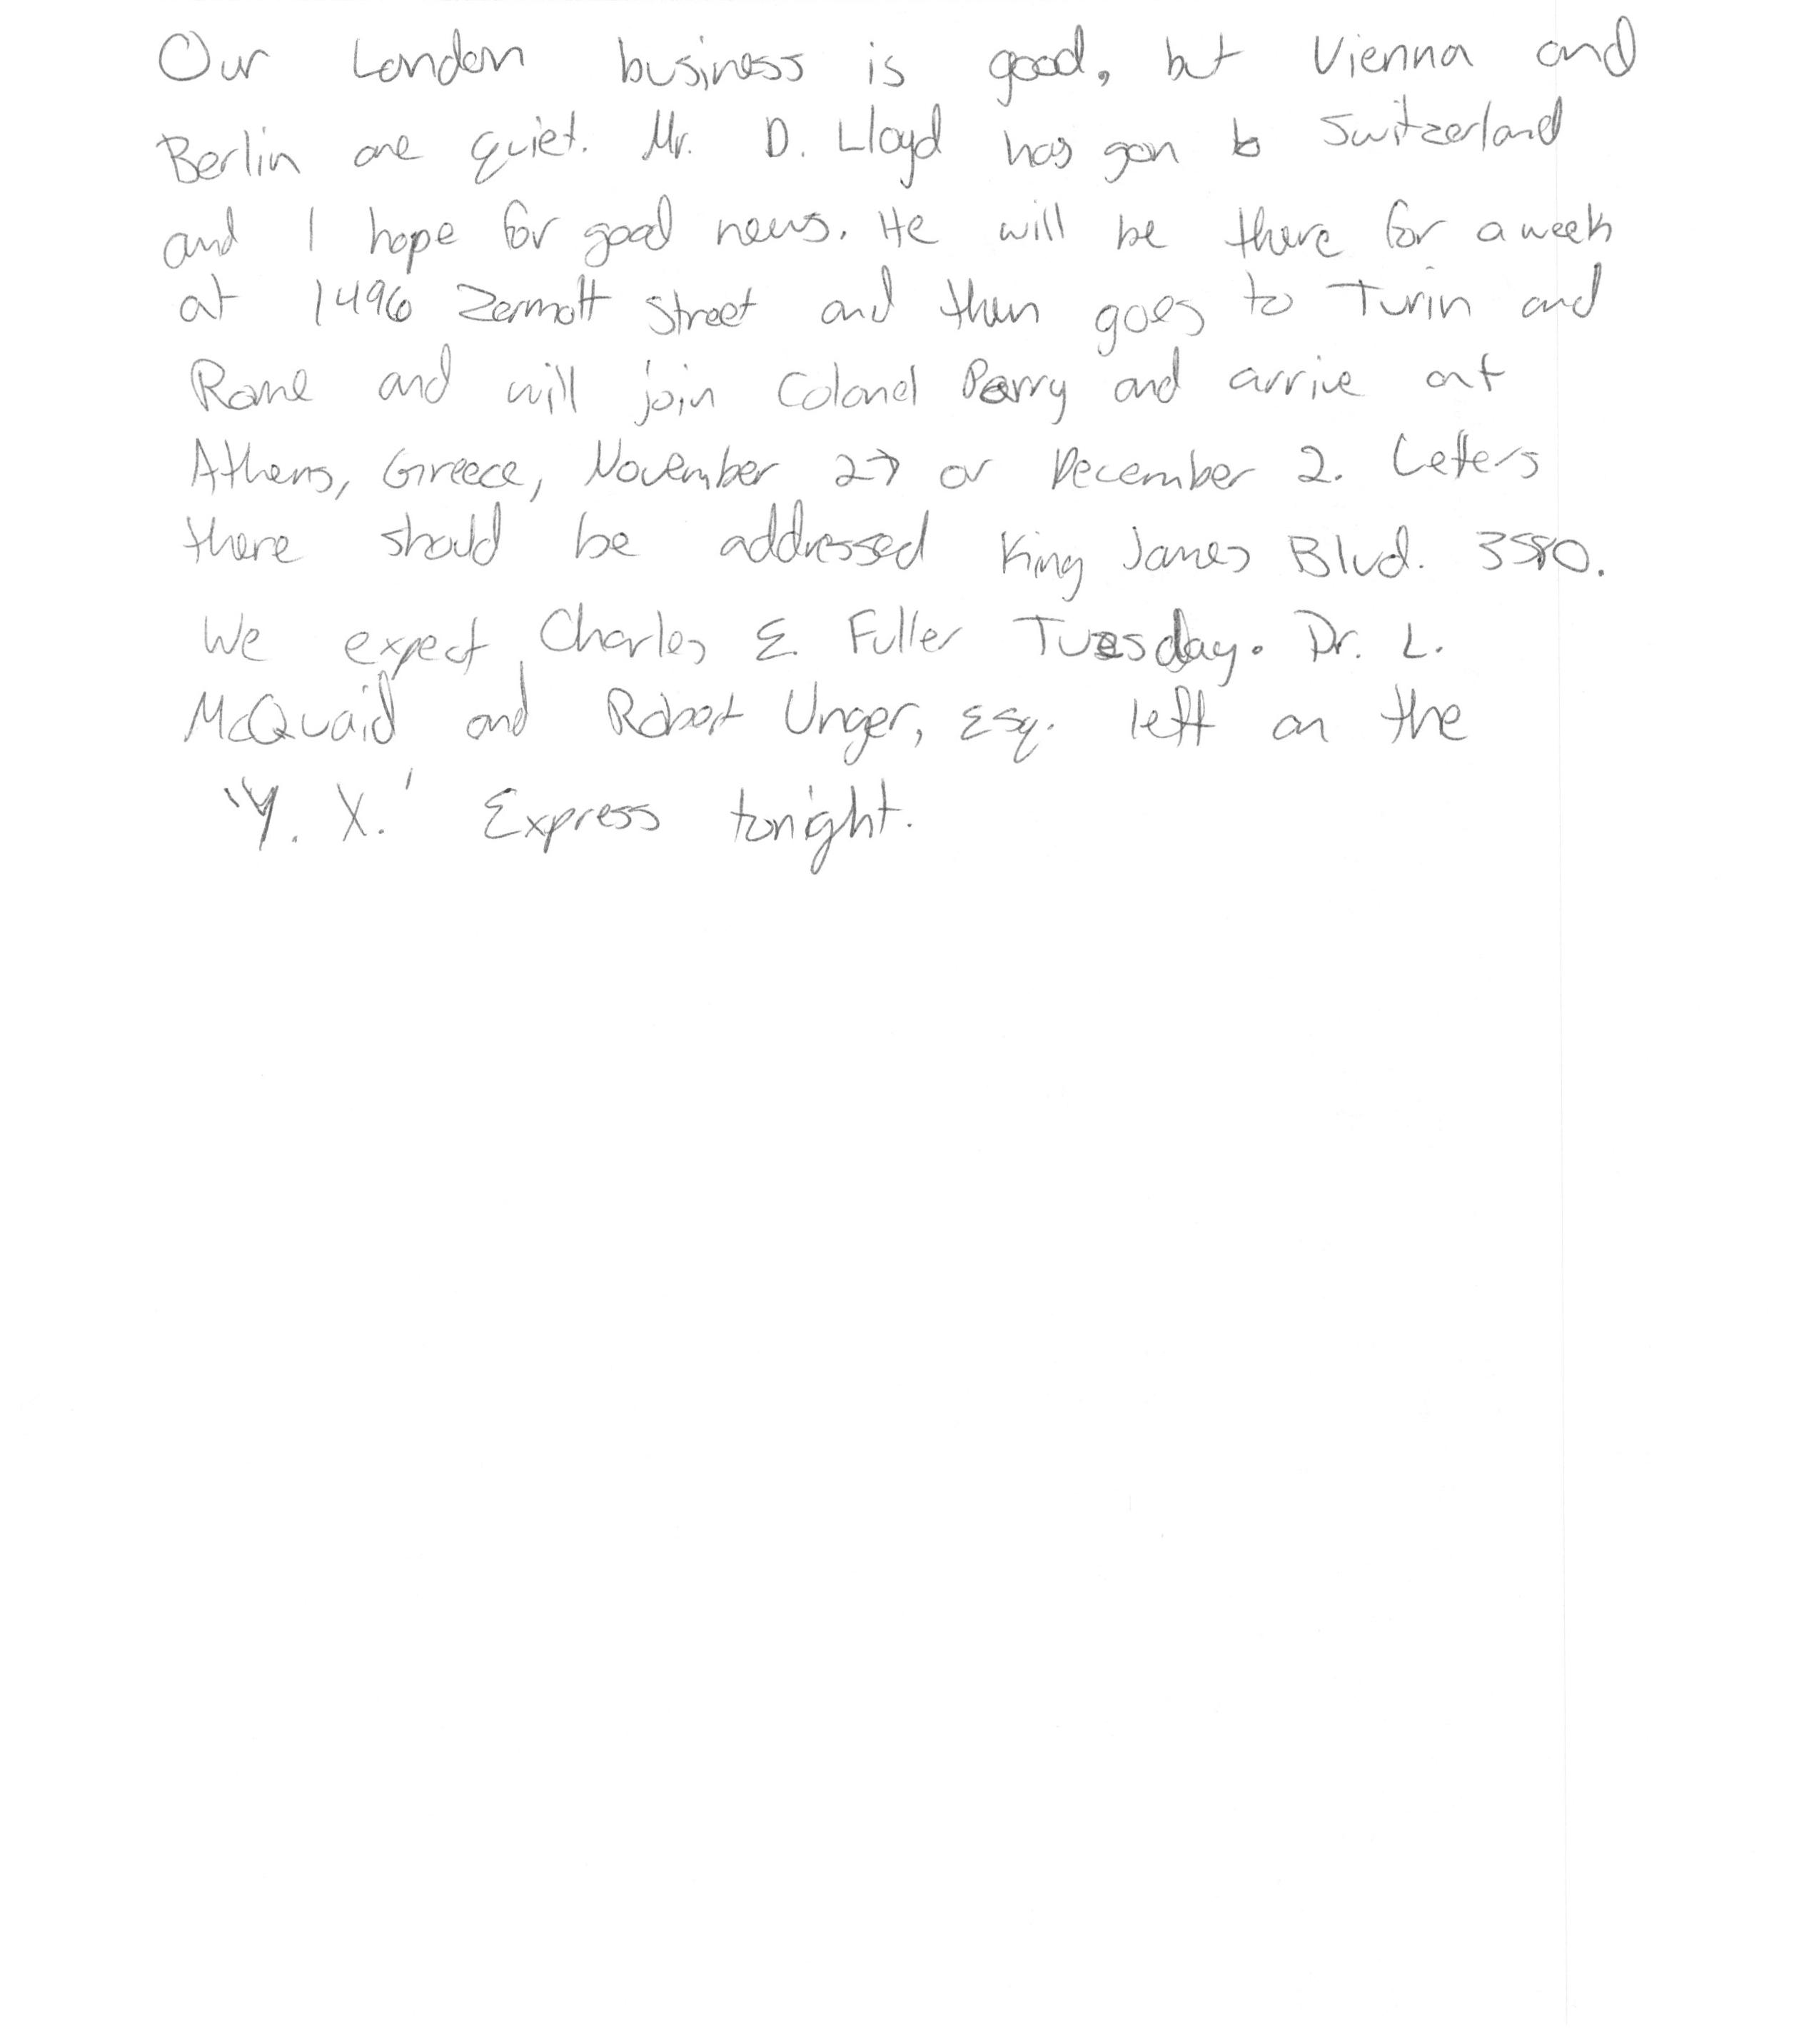 Our London business is good, but Vienna and
Berlin are quiet. Mr. D. Lloyd has gon to Switzerland
and I hope for good news. He will be there for a week
at 1496 Zermott Street and then goes to Turin and
Rome and will join Colonel Perry and arrive at
Athens, Greece, November 27 or December 2. Letters
there should be addressed King James Blvd. 3580.
We expect Charles E. Fuller Tuesday. Dr. L.
McQuaid and Robert Unger, Esq. left on the
'Y. X.' Express tonight.